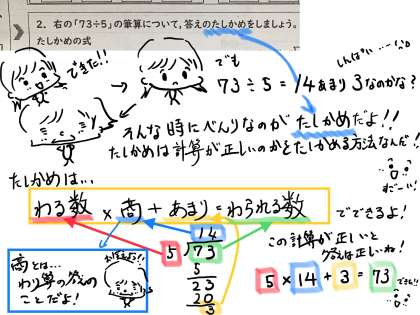 2. 右の「73÷5」の筆算について，答えのたしかめをしましょう。
たしかめの式
できた!!
でも
73÷5=14あまり3なのかな？
しんぱい…
そんな時にべんりなのがたしかめだよ!!
たしかめは計算が正しいのかをたしかめる方法なんだ！
わだーい！
たしかめは…
わる数×商+あまり=わられる数
でできるよ！
14
5)73
5
23
20
3
商とは…
わり算の答えの
ことだよ！
おぼえよう!!
この計算が正しいと
答えは正しいね！
5×14+3=73
できた!!